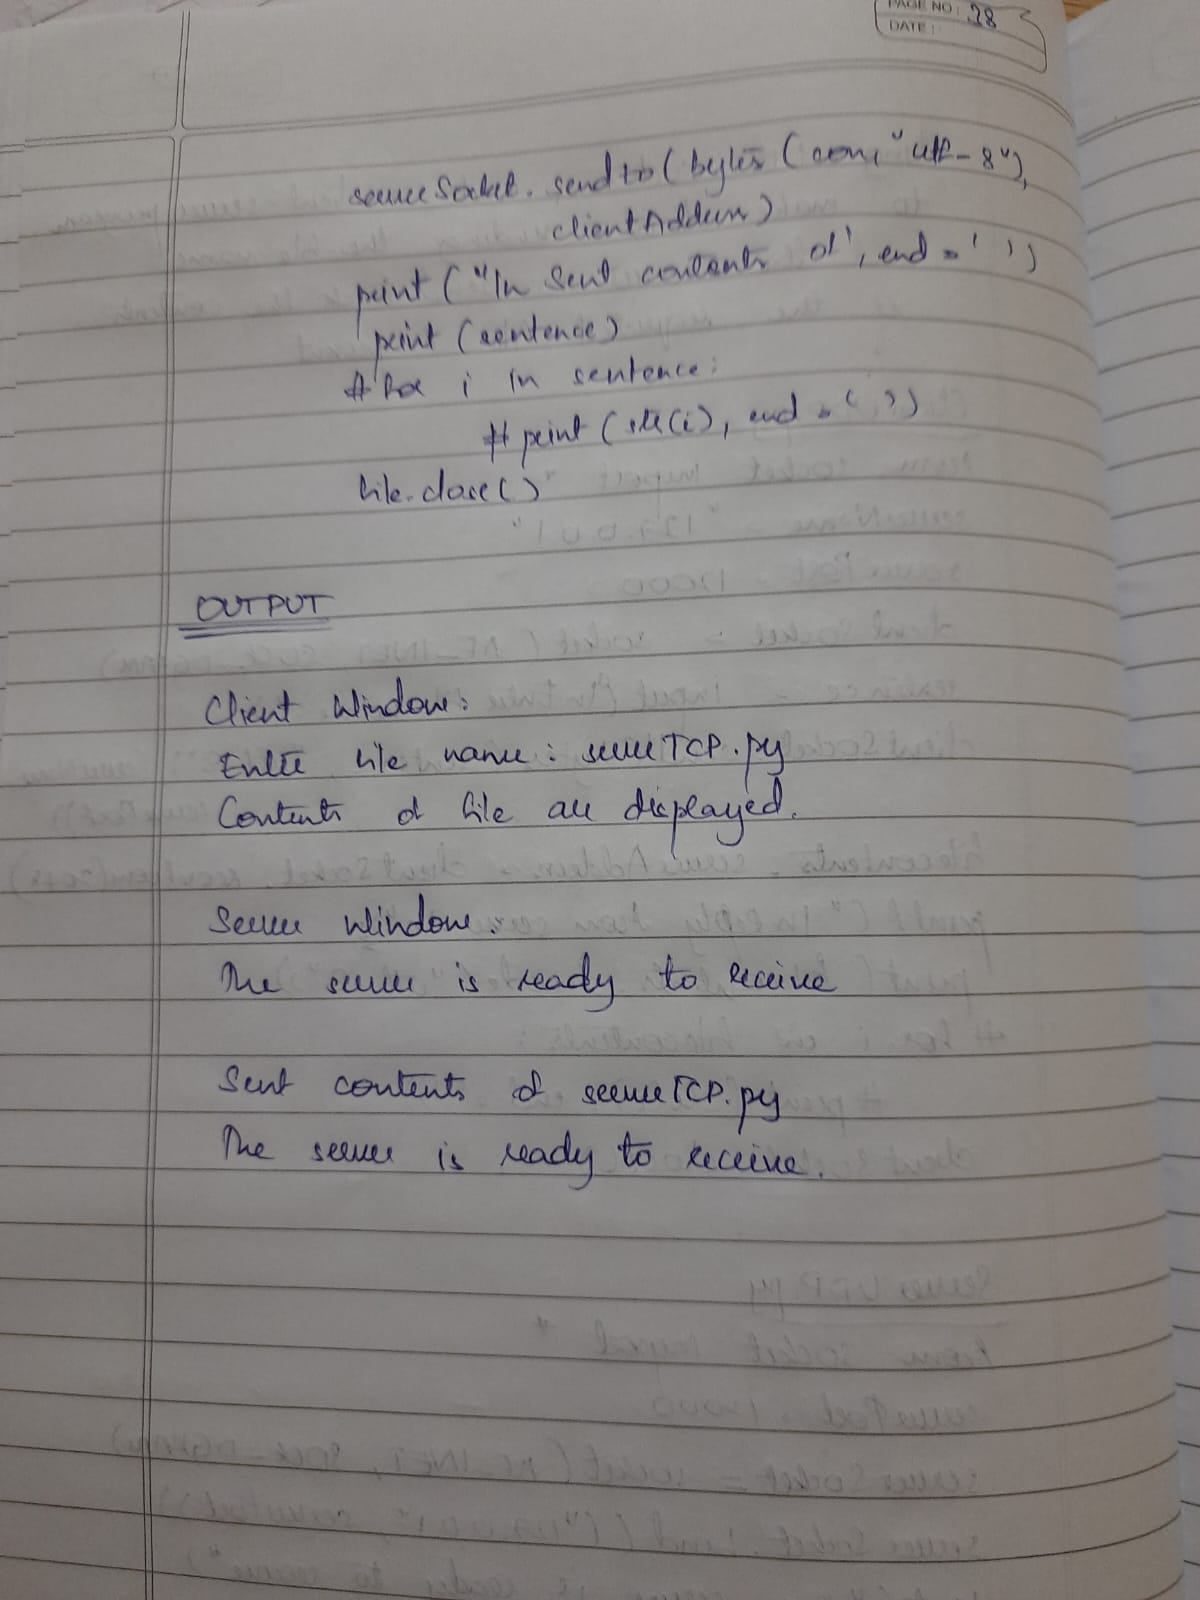 PAGE NO: 28
DATE:
serverSocket.sendto(bytes(con, "utf-8"),
clientAddress)
print ("\n Sent contents of', end = ' ')
print (sentence)
# for i in sentence:
# print (str(i), end = ' ')
file.close()
OUTPUT
Client Window:
Enter file name : serverTCP.py
Contents of file are displayed.
Server Window:
The server is ready to receive
Sent contents of serverTCP.py
The server is ready to receive.